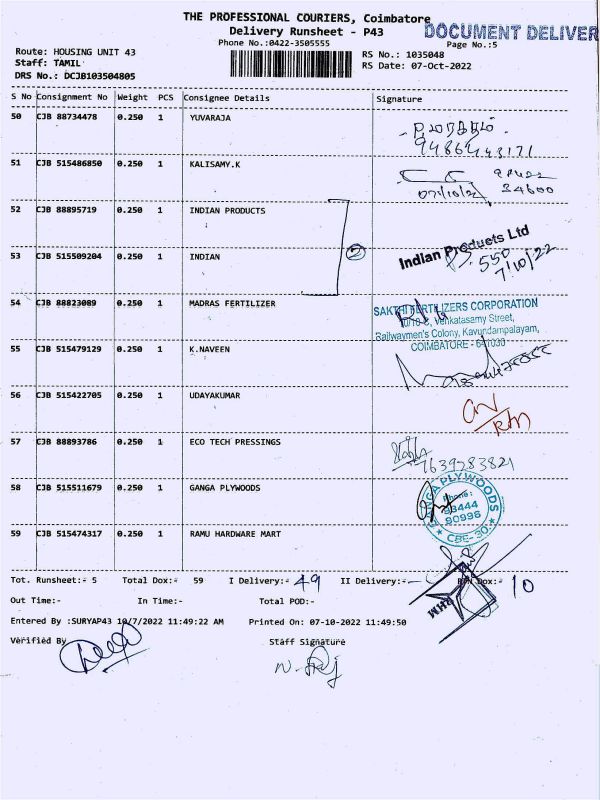 THE PROFESSIONAL COURIERS, Coimbatore
DOCUMENT DELIVER
Delivery Runsheet - P43
Phone No.:0422-3505555
Page No.:5
Route: HOUSING UNIT 43
RS No.: 1035048
Staff: TAMIL
RS Date: 07-Oct-2022
DRS No.: DCJB103504805
S No Consignment No Weight PCS Consignee Details Signature
50 CJB 88734478 0.250 1 YUVARAJA
51 CJB 515486850 0.250 1 KALISAMY.K
07/10/22
34600
52 CJB 88895719 0.250 1 INDIAN PRODUCTS
2
Indian Products Ltd
53 CJB 515509204 0.250 1 INDIAN
550
7/10/22
54 CJB 88823089 0.250 1 MADRAS FERTILIZER
SAKTHI FERTILIZERS CORPORATION
Venkatasamy Street,
Railwaymen's Colony, Kavundampalayam,
COIMBATORE - 641030
55 CJB 515479129 0.250 1 K.NAVEEN
56 CJB 515422705 0.250 1 UDAYAKUMAR
57 CJB 88893786 0.250 1 ECO TECH PRESSINGS
7639783821
58 CJB 515511679 0.250 1 GANGA PLYWOODS
GANGA PLYWOODS
Phone :
93444
90996
CBE-30.
59 CJB 515474317 0.250 1 RAMU HARDWARE MART
Tot. Runsheet:- 5 Total Dox:- 59 I Delivery:- 49 II Delivery:- Dox:- 10
RHM
Out Time:- In Time:- Total POD:-
Entered By :SURYAP43 10/7/2022 11:49:22 AM Printed On: 07-10-2022 11:49:50
Verified By
Staff Signature